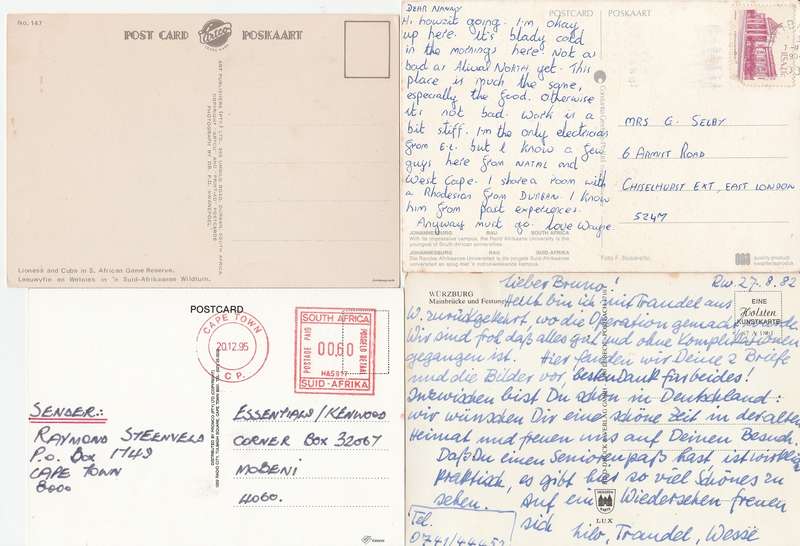 No. 147
POST CARD
Artco
POSKAART
ART PUBLISHERS (PTY) LTD., DURBAN, SOUTH AFRICA
Lioness and Cubs in S. African Game Reserve.
Leeuwyfie en Welpies in 'n Suid-Afrikaanse Wildtuin.
DEAR NANNY
Hi howzit going. I'm okay
up here. It's blady cold
in the mornings here. Not as
bad as Aliwal NORTH yet. This
place is much the same,
especially the food. Otherwise
it's not bad. Work is a
bit stiff. I'm the only electrician
from E.L. but I know a few
guys here from NATAL and
West Cape. I share a room with
a Rhodesian from DURBAN. I know
him from past experiences.
Anyway must go. Love Wayne.
POSTCARD POSKAART
MRS G. SELBY
6 ARMIT ROAD
CHISELHURST EXT, EAST LONDON
5247
JOHANNESBURG RAU SOUTH AFRICA
With its impressive campus, the Rand Afrikaans University is the
youngest of South African universities.
JOHANNESBURG RAU SUID-AFRIKA
quality product
POSTCARD
CAPE TOWN
20.12.95
C.P.
SOUTH AFRICA
POSTAGE PAID
00,60
POSGELD BETAAL
SUID-AFRIKA
SENDER:
RAYMOND STEENVELD
P.O. BOX 1749
CAPE TOWN
8000
ESSENTIALS/KENWOOD
CORNER BOX 32067
MOBENI
4060.
WÜRZBURG
Mainbrücke und Festung
EINE
Holsten
KUNSTKARTE
Rw 27.8.82
Lieber Bruno!
Heute bin ich mit Traudel aus
W. zurückgekehrt, wo die Operation gemacht wurde.
Wir sind froh, daß alles gut und ohne Komplikationen
gegangen ist. Hier fanden wir Deine 2 Briefe
und die Bilder vor, besten Dank für beides!
Inzwischen bist Du schon in Deutschland:
wir wünschen Dir eine schöne Zeit in der alten
Heimat und freuen uns auf Deinen Besuch.
Daß Du einen Seniorenpaß hast, ist wirklich
praktisch, es gibt hier so viel Schönes zu
sehen. Auf ein Wiedersehen freuen
sich Lilo, Traudel, Wesse
Tel.
0741/44452
LUX